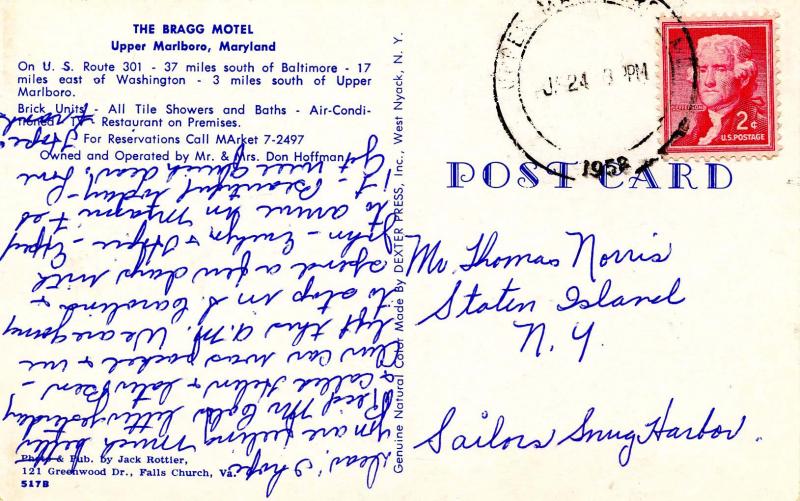 THE BRAGG MOTEL
Upper Marlboro, Maryland
On U. S. Route 301 - 37 miles south of Baltimore - 17
miles east of Washington - 3 miles south of Upper
Marlboro.
Brick Units - All Tile Showers and Baths - Air-Condi-
tioned - TV - Restaurant on Premises.
For Reservations Call MArket 7-2497
Owned and Operated by Mr. & Mrs. Don Hoffman
Dear, I hope
you are feeling much better
Rec'd Mr Cobbs letter yesterday
& called Helen & later Ben -
Our car was packed & we
left this A.M. We are going
to stop in S. Carolina &
spend a few days with
John - Evelyn &
to arrive in Miami Feb
1st - Beautiful today -
Get well quick dear. Love
Photo & Pub. by Jack Rottier,
121 Greenwood Dr., Falls Church, Va.
517B
Genuine Natural Color Made by DEXTER PRESS, Inc., West Nyack, N. Y.
JA 24 PM
1958
JEFFERSON
2¢
U.S. POSTAGE
POST CARD
Mr. Thomas Norris
Staten Island
N. Y.
Sailors Snug Harbor.